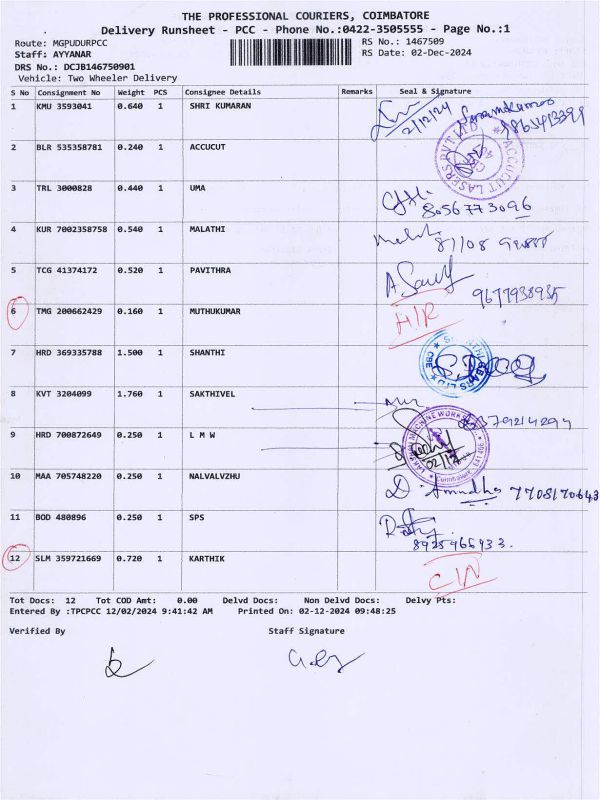 THE PROFESSIONAL COURIERS, COIMBATORE
Delivery Runsheet - PCC - Phone No.:0422-3505555 - Page No.:1
Route: MGPUDURPCC RS No.: 1467509
Staff: AYYANAR RS Date: 02-Dec-2024
DRS No.: DCJB146750901
Vehicle: Two Wheeler Delivery
S No Consignment No Weight PCS Consignee Details Remarks Seal & Signature
1 KMU 3593041 0.640 1 SHRI KUMARAN 2/12/24
2 BLR 535358781 0.240 1 ACCUCUT ACCUCUT LASERS PVT LTD
3 TRL 3000828 0.440 1 UMA 8056773096
4 KUR 7002358758 0.540 1 MALATHI
5 TCG 41374172 0.520 1 PAVITHRA 9677938935
6 TMG 200662429 0.160 1 MUTHUKUMAR
7 HRD 369335788 1.500 1 SHANTHI CBE
8 KVT 3204099 1.760 1 SAKTHIVEL
9 HRD 700872649 0.250 1 L M W 02/12
10 MAA 705748220 0.250 1 NALVALVZHU D. Amudha 7708170643
11 BOD 480896 0.250 1 SPS
12 SLM 359721669 0.720 1 KARTHIK
Tot Docs: 12 Tot COD Amt: 0.00 Delvd Docs: Non Delvd Docs: Delvy Pts:
Entered By :TPCPCC 12/02/2024 9:41:42 AM Printed On: 02-12-2024 09:48:25
Verified By Staff Signature